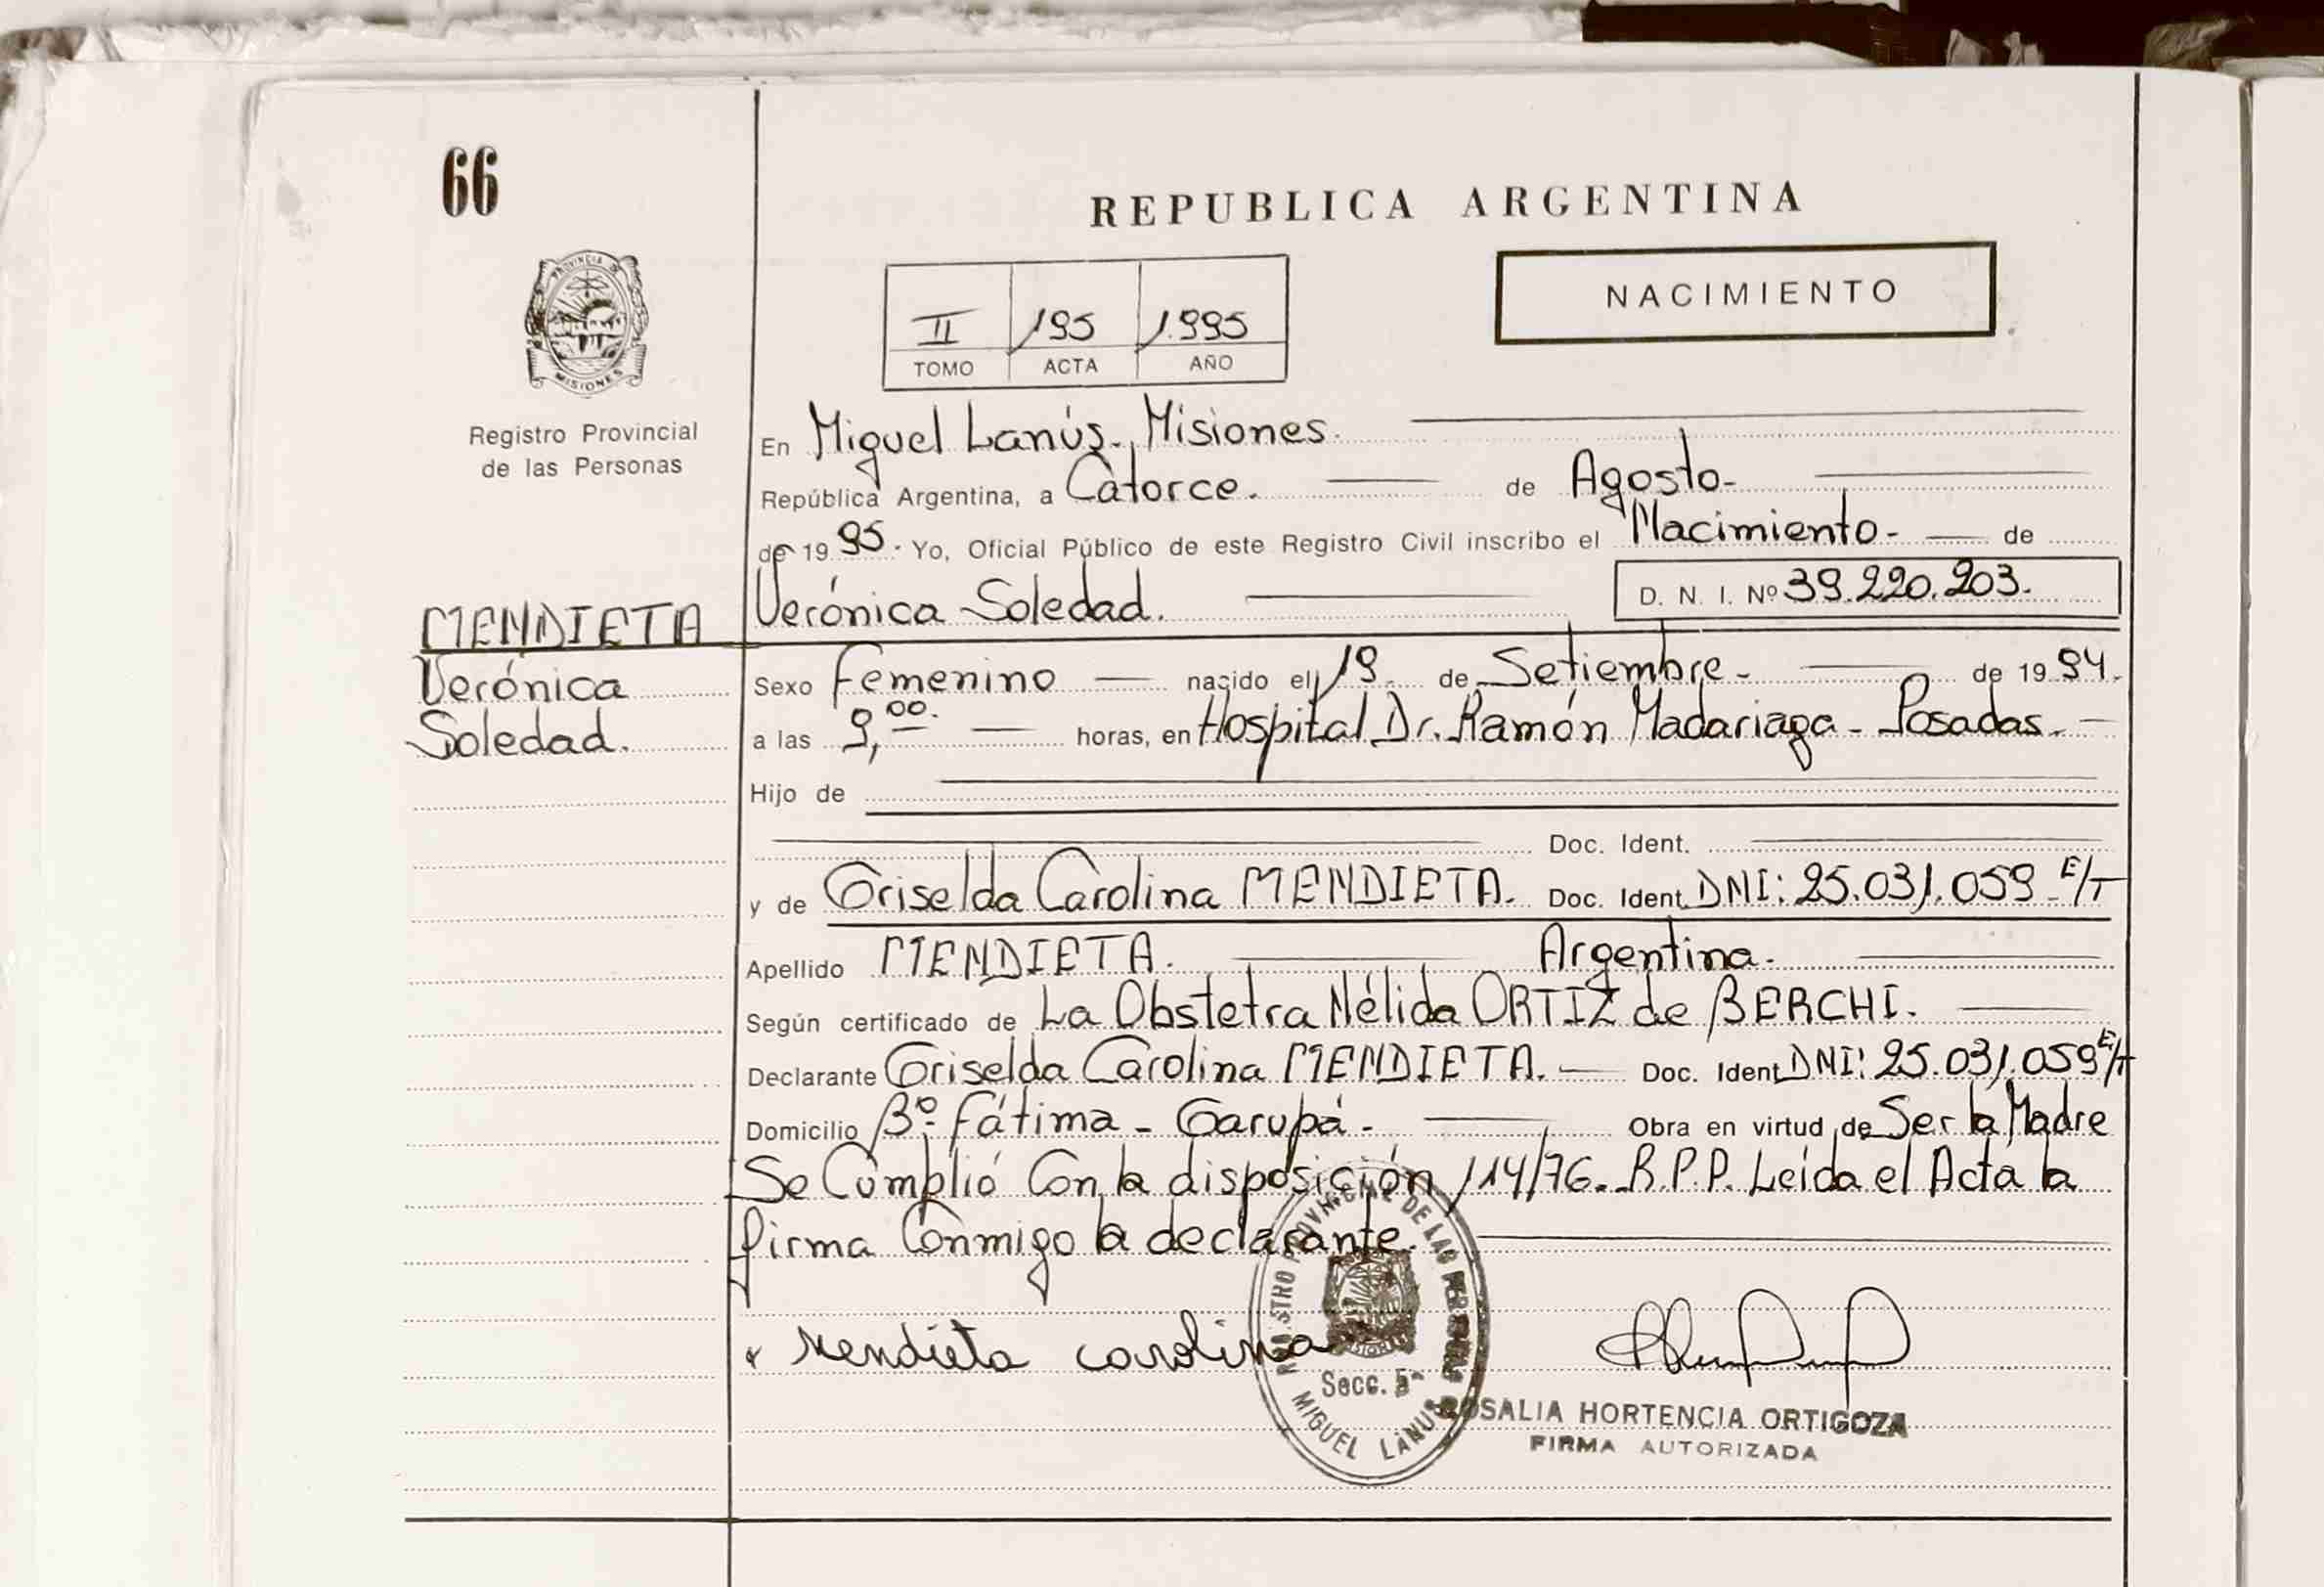 66
REPUBLICA ARGENTINA
NACIMIENTO
II 195 1.995
TOMO ACTA AÑO
PROVINCIA DE
MISIONES
Registro Provincial
de las Personas
En Miguel Lanús. Misiones.
República Argentina, a Catorce. de Agosto-
de 19 95. Yo, Oficial Público de este Registro Civil inscribo el Nacimiento- de
Verónica Soledad. D. N. I. Nº 39.220.203.
MENDIETA
Verónica
Soledad.
Sexo Femenino nacido el 19 de Setiembre- de 19 94.
a las 9,00. horas, en Hospital Dr. Ramón Madariaga - Posadas.-
Hijo de
Doc. Ident.
y de Griselda Carolina MENDIETA. Doc. Ident. DNI: 25.031.059 E/T
Apellido MENDIETA. Argentina.
Según certificado de La Obstetra Nélida ORTIZ de BERCHI.
Declarante Griselda Carolina MENDIETA. Doc. Ident. DNI: 25.031.059 E/T
Domicilio Bº Fátima - Garupá. Obra en virtud de Ser la Madre
Se Cumplió Con la disposición 114/76. R.P.P. Leída el Acta la
firma Conmigo la declarante.
Mendieta carolina
REGISTRO PROVINCIAL DE LAS PERSONAS
Secc. 5ª
MIGUEL LANUS
ROSALIA HORTENCIA ORTIGOZA
FIRMA AUTORIZADA